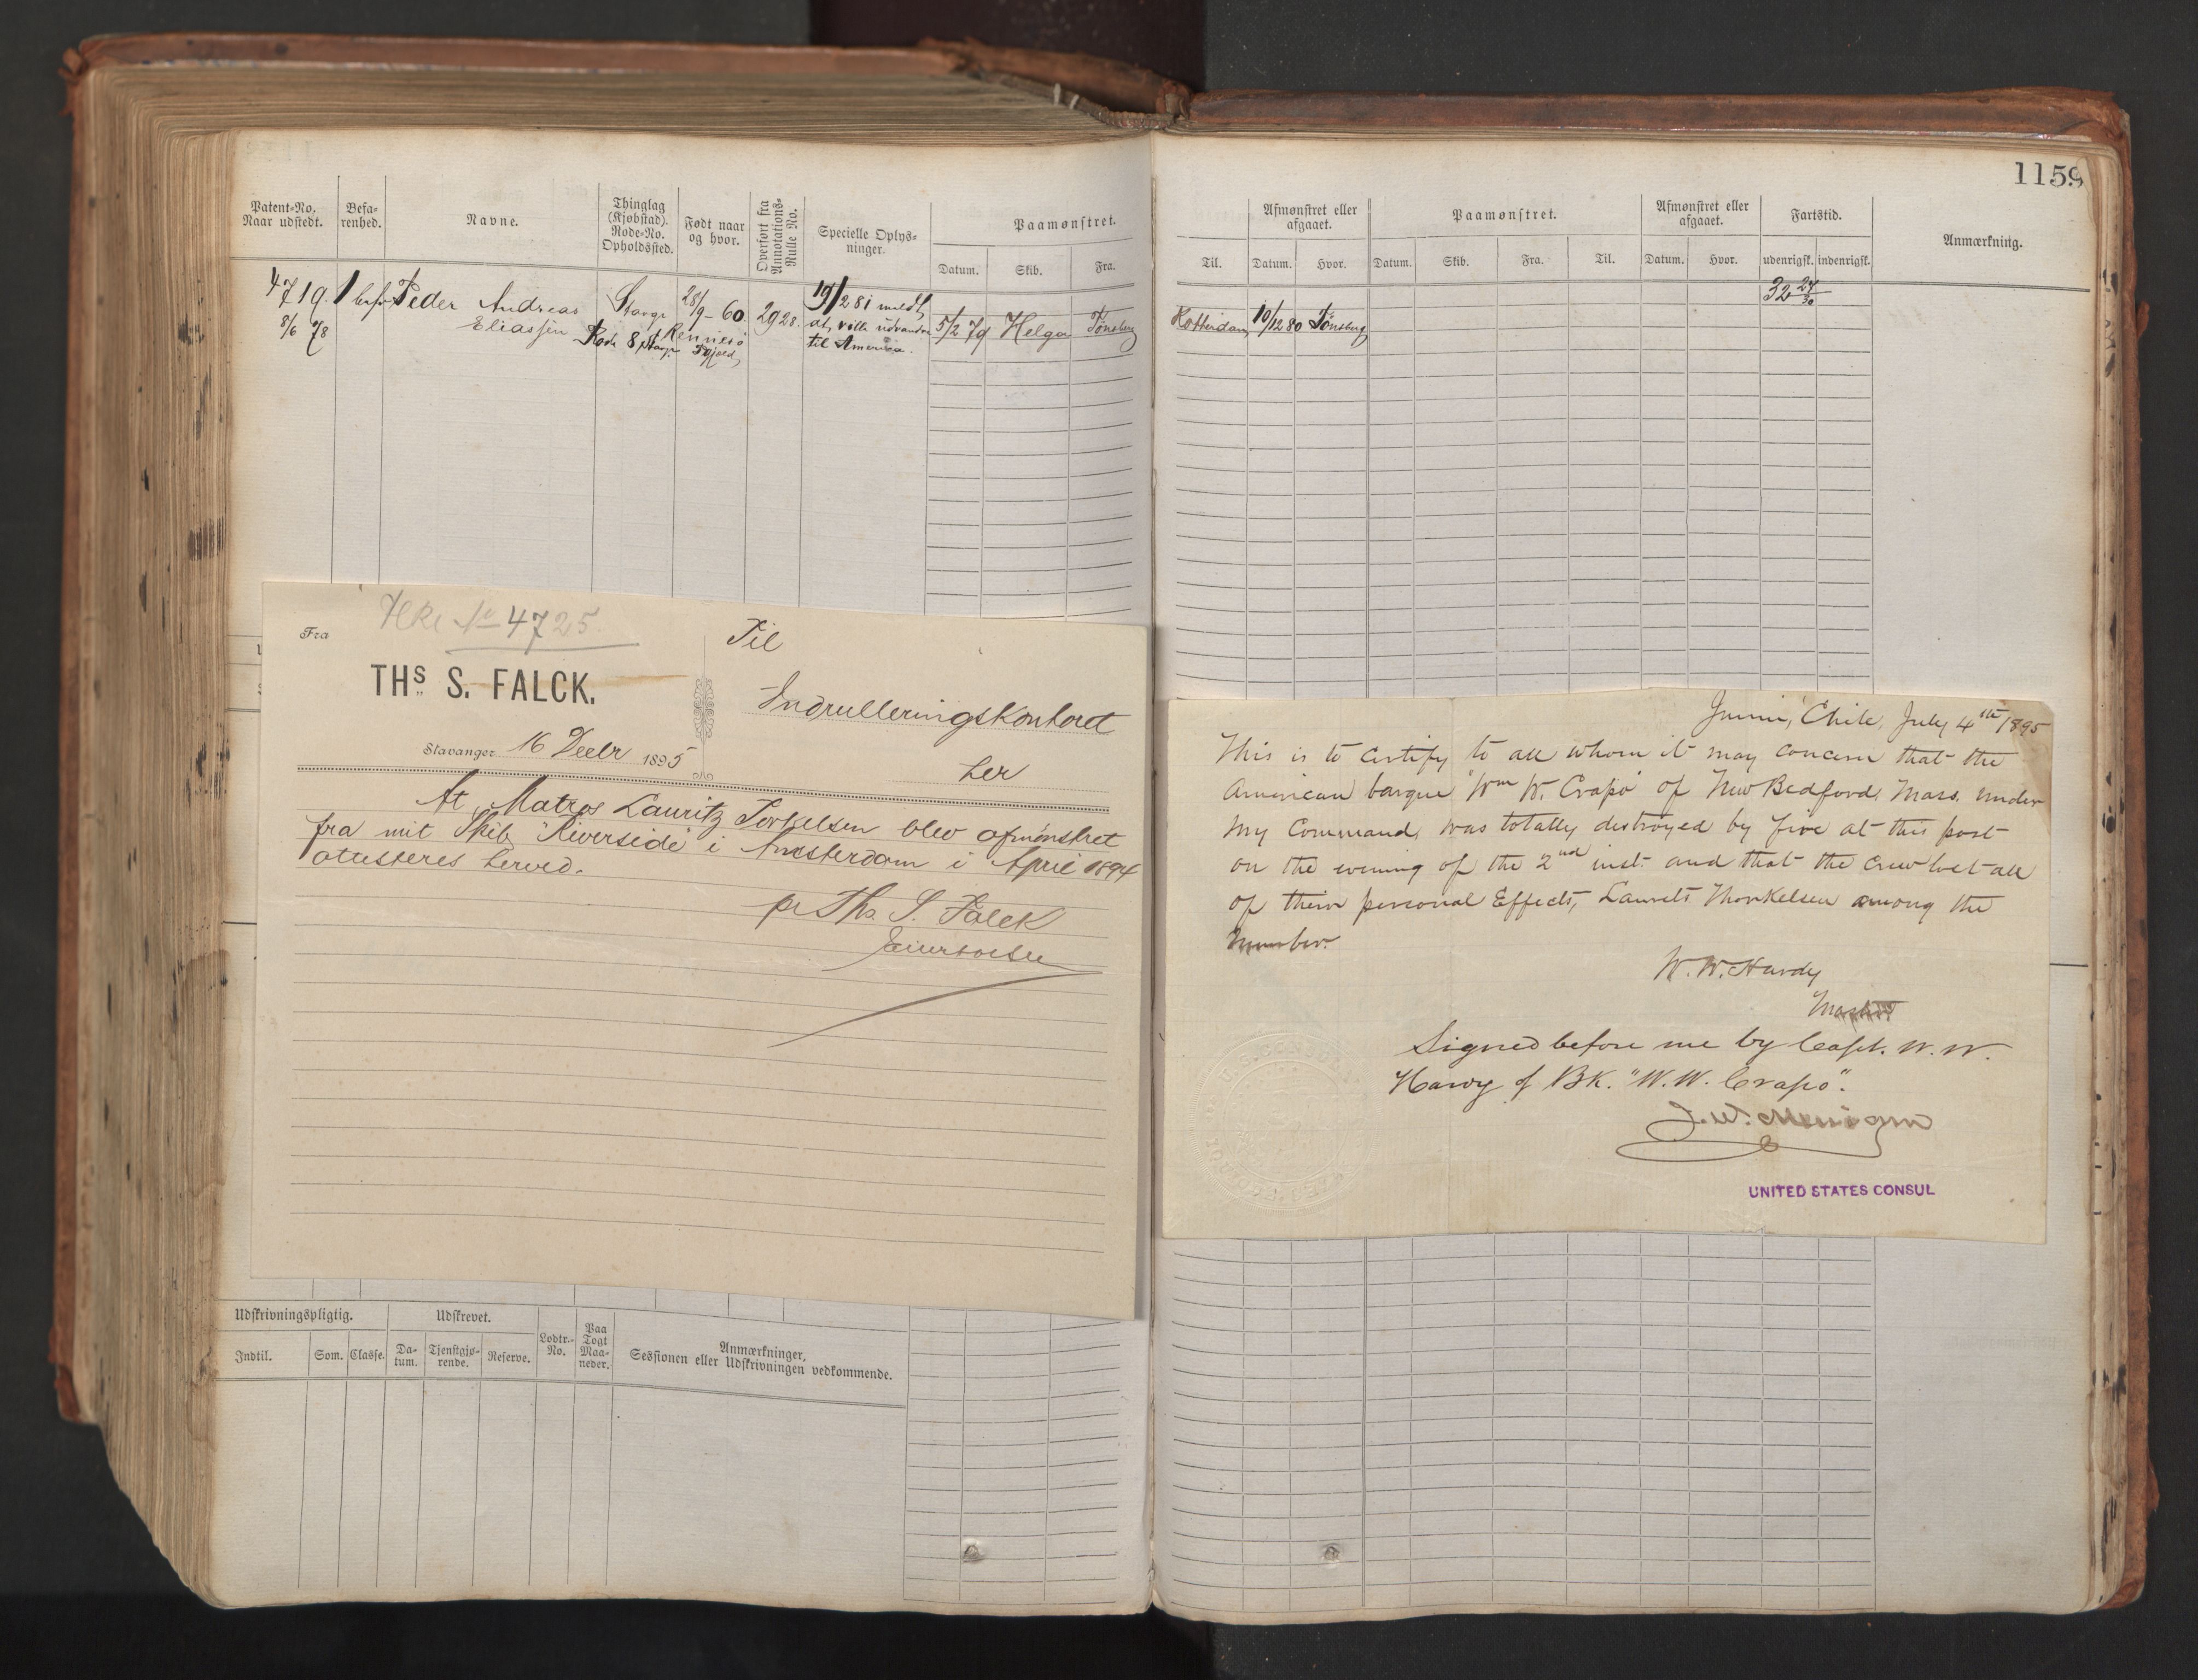 1159
Patent-No. Naar udstedt.
Befa-renhed.
Navne.
Thinglag (Kjøbstad). Rode-No. Opholdssted.
Født naar og hvor.
Overført fra Annotations-Rulle No.
Specielle Oplys-ninger.
Paamønstret.
Datum. Skib. Fra.
Til.
Afmønstret eller afgaaet.
Datum. Hvor.
Paamønstret.
Datum. Skib. Fra. Til.
Afmønstret eller afgaaet.
Datum. Hvor.
Fartstid.
udenrigsk. indenrigsk.
Anmærkning.
4719.
8/6 78
1
Peder Andreas
Eliassen
Stavgr
Rode 8
28/9 - 60.
Rennesø
2928.
19/2 81 meldt,
at, ville udvandre
til Amerika.
5/2 79 Helga Tønsberg
Rotterdam 10/12 80 Tønsberg
32 24/30
4725
Fra
THS S. FALCK.
Stavanger 16 Decbr 1895
Til
Indrulleringskontoret
her
At Matros Lauritz Torkelsen blev afmønstret
fra mit Skib "Riverside" i Amsterdam i April 1894
attesteres herved.
pr Ths. S. Falck
Junin, Chile, July 4th 1895
This is to certify to all whom it may concern that the
American barque "Wm W. Crapo" of New Bedford, Mass. under
my Command, was totally destroyed by fire at this port
on the evening of the 2nd inst. and that the crew lost all
of their personal Effects, Laurets Thorkelsen among the
number.
W. W. Hardy
Master
Signed before me by Capt. W. W.
Hardy of Bk. "W. W. Crapo".
UNITED STATES CONSUL
Udskrivningspligtig.
Indtil. Som. Classe.
Udskrevet.
Da-tum. Tjenstgjø-rende. Reserve.
Lodtr.-No.
Paa Togt Maa-neder.
Anmærkninger,
Sessionen eller Udskrivningen vedkommende.